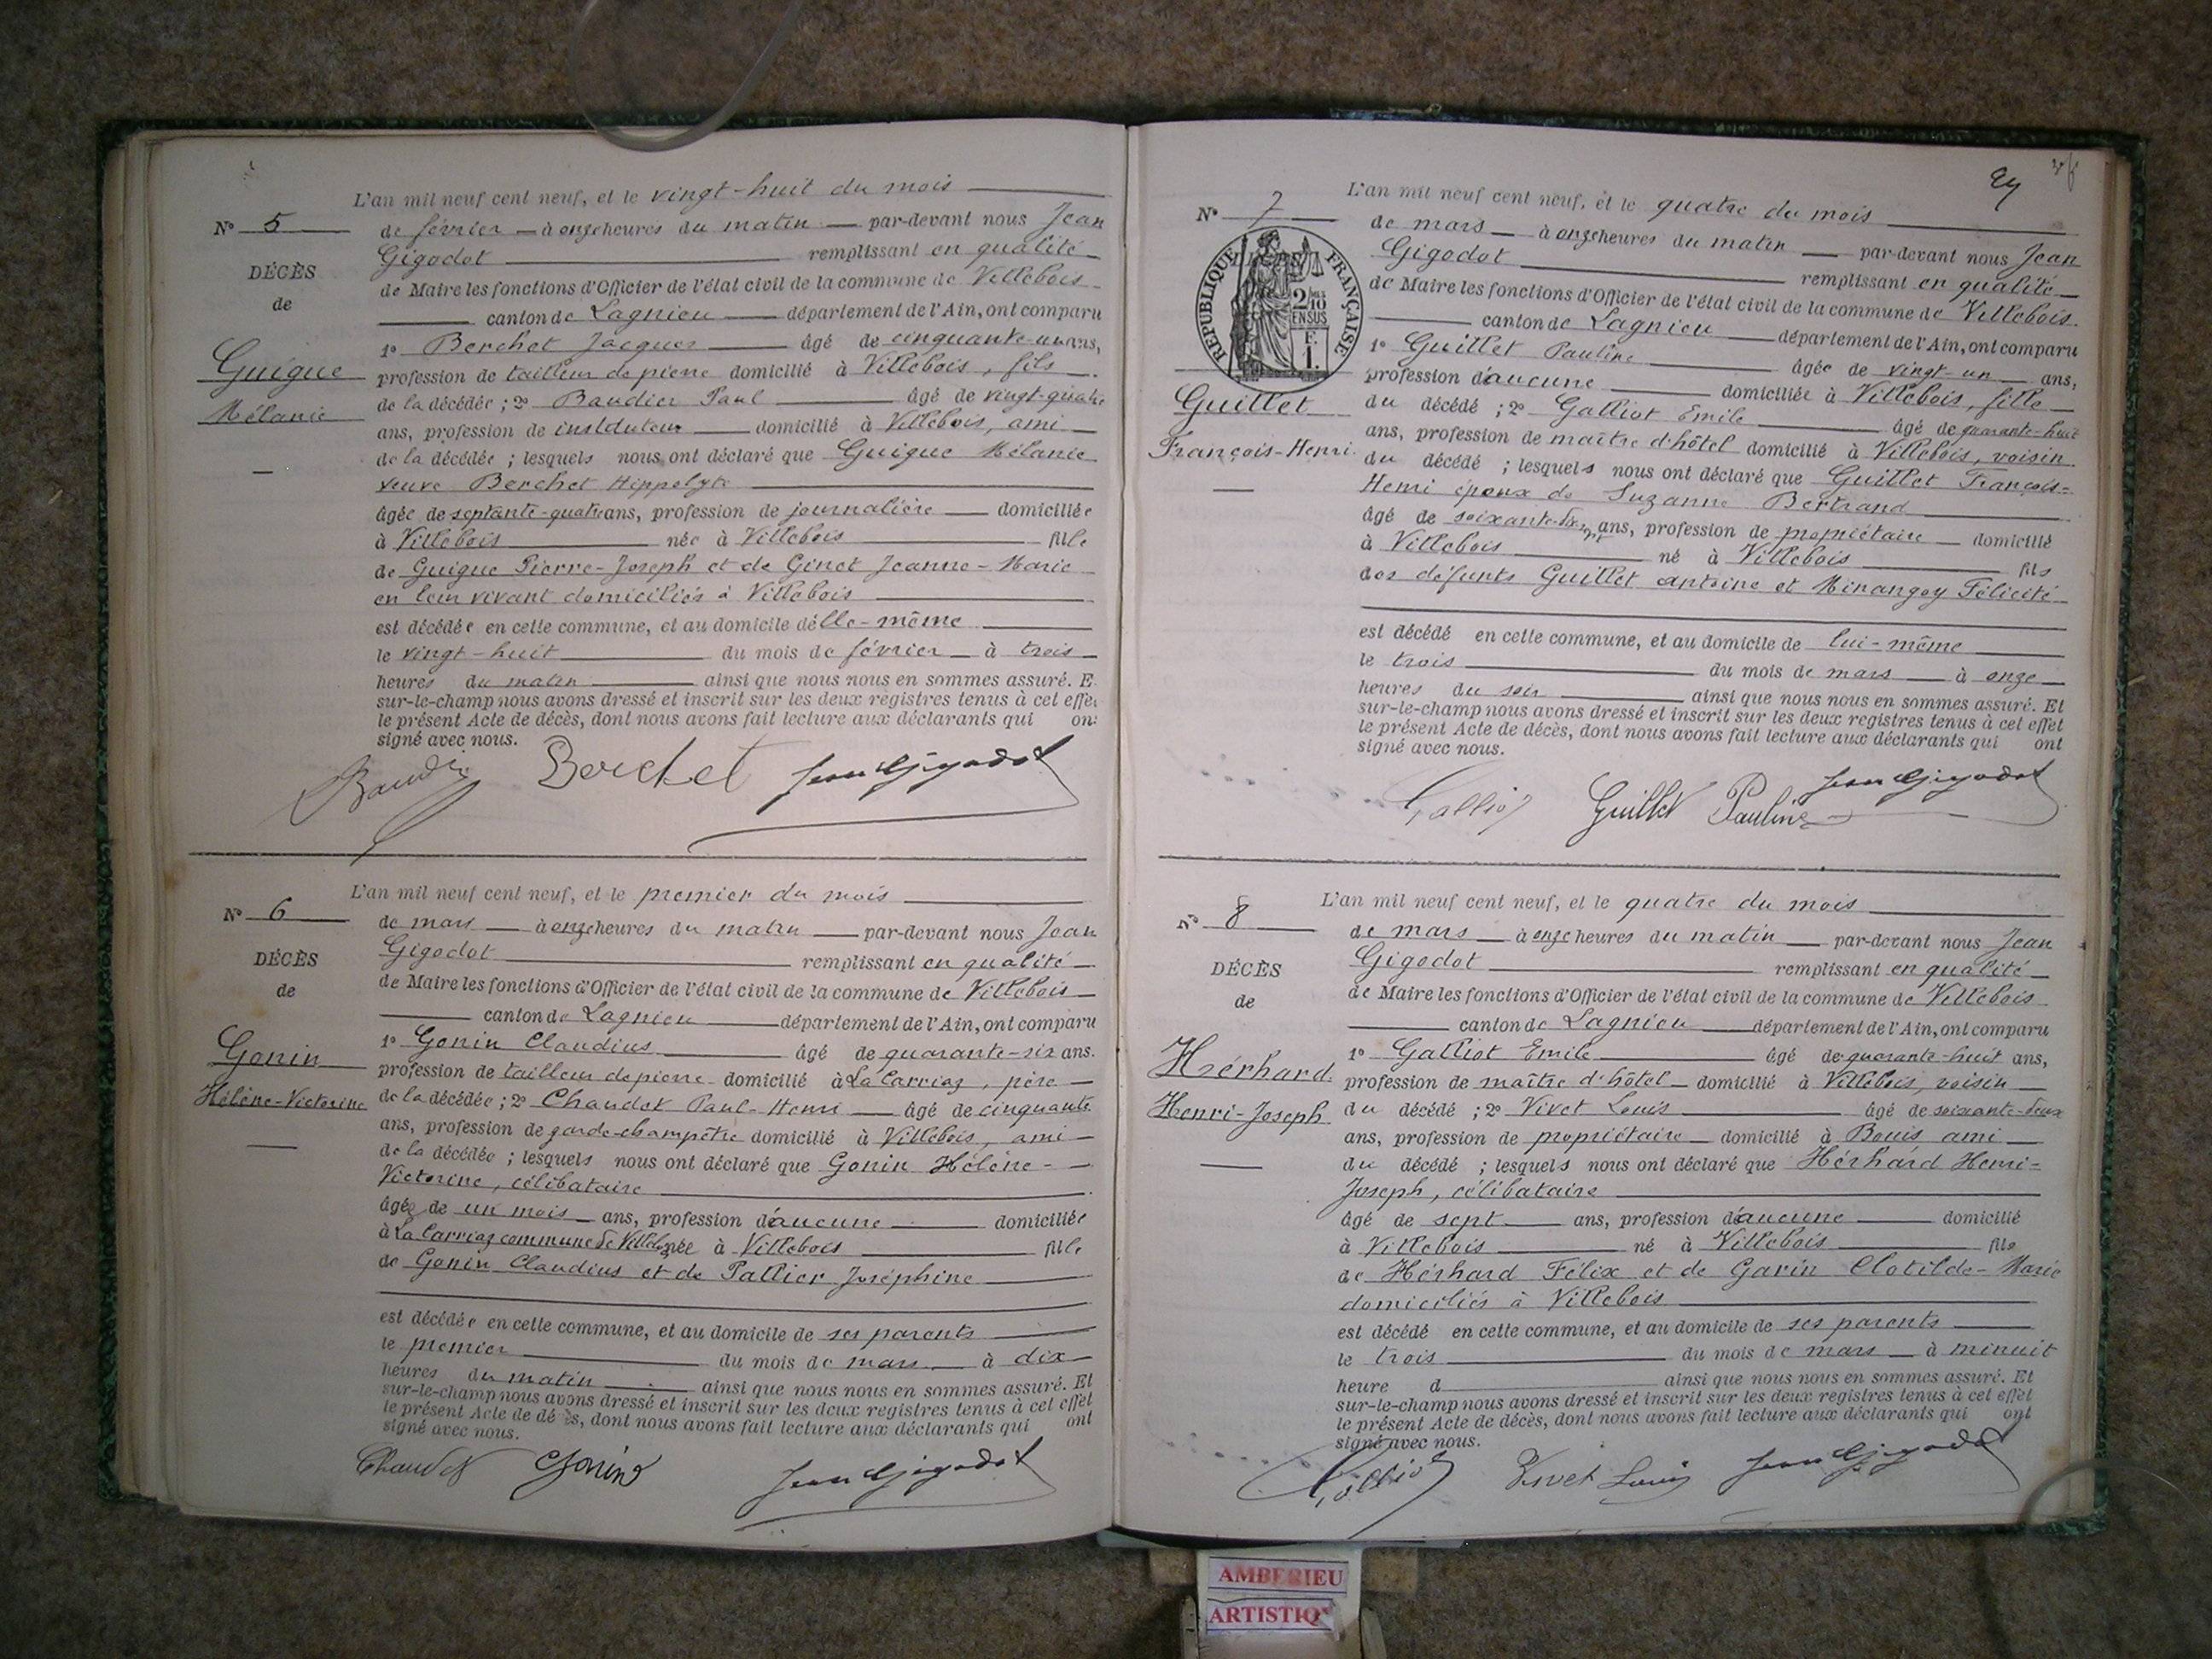 L'an mil neuf cent neuf, et le vingt-huit du mois
N° 5
de février à onze heures du matin par-devant nous Jean
Gigodot remplissant en qualité
DÉCÈS
de Maire les fonctions d'Officier de l'état civil de la commune de Villebois
de
canton de Lagnieu département de l'Ain, ont comparu
1° Berchet Jacques âgé de cinquante-un ans,
Guigue
profession de tailleur de pierre domicilié à Villebois, fils
de la décédée ; 2° Baudier Paul âgé de vingt-quatre
Mélanie
ans, profession de instituteur domicilié à Villebois, ami
de la décédée ; lesquels nous ont déclaré que Guigue Mélanie
veuve Berchet Hippolyte
âgée de septante-quatre ans, profession de journalière domiciliée
à Villebois née à Villebois fille
de Guigue Pierre-Joseph et de Ginet Jeanne-Marie
en leur vivant domiciliés à Villebois
est décédée en cette commune, et au domicile d'elle-même
le vingt-huit du mois de février à trois
heures du matin ainsi que nous nous en sommes assuré. E
sur-le-champ nous avons dressé et inscrit sur les deux registres tenus à cet effe
le présent Acte de décès, dont nous avons fait lecture aux déclarants qui on
signé avec nous.
Berchet Jean Gigodot
L'an mil neuf cent neuf, et le premier du mois
N° 6
de mars à onze heures du matin par-devant nous Jean
Gigodot remplissant en qualité
DÉCÈS
de Maire les fonctions d'Officier de l'état civil de la commune de Villebois
de
canton de Lagnieu département de l'Ain, ont comparu
1° Gonin Claudius âgé de quarante-six ans.
Gonin
profession de tailleur de pierre domicilié à La Carriaz, père
Hélène-Victorine
de la décédée ; 2° Chaudet Paul-Henri âgé de cinquante
ans, profession de garde-champêtre domicilié à Villebois, ami
de la décédée ; lesquels nous ont déclaré que Gonin Hélène-
Victorine, célibataire
âgée de un mois ans, profession d'aucune domiciliée
à La Carriaz commune de Villebois née à Villebois fille
de Gonin Claudius et de Pallier Joséphine
est décédée en cette commune, et au domicile de ses parents
le premier du mois de mars à dix
heures du matin ainsi que nous nous en sommes assuré. Et
sur-le-champ nous avons dressé et inscrit sur les deux registres tenus à cet effet
le présent Acte de dé s, dont nous avons fait lecture aux déclarants qui ont
signé avec nous.
Chaudet Gonin Jean Gigodot
L'an mil neuf cent neuf, et le quatre du mois
N° 7
de mars à onze heures du matin par-devant nous Jean
Gigodot remplissant en qualité
RÉPUBLIQUE FRANÇAISE
2/10 EN SUS
F. 1.
de Maire les fonctions d'Officier de l'état civil de la commune de Villebois.
canton de Lagnieu département de l'Ain, ont comparu
1° Guillet Pauline âgée de vingt-un ans,
profession d'aucune domiciliée à Villebois, fille
Guillet
du décédé ; 2° Galliot Emile âgé de quarante-huit
François-Henri.
ans, profession de maître d'hôtel domicilié à Villebois, voisin
du décédé ; lesquels nous ont déclaré que Guillet François=
Henri époux de Suzanne Bertrand
âgé de ans, profession de propriétaire domicilié
à Villebois né à Villebois fils
des défunts Guillet antoine et Minangoy Félicité
est décédé en cette commune, et au domicile de lui-même
le trois du mois de mars à onze
heures du soir ainsi que nous nous en sommes assuré. Et
sur-le-champ nous avons dressé et inscrit sur les deux registres tenus à cet effet
le présent Acte de décès, dont nous avons fait lecture aux déclarants qui ont
signé avec nous.
Galliot Guillet Pauline Jean Gigodot
L'an mil neuf cent neuf, et le quatre du mois
N° 8
de mars à onze heures du matin par-devant nous Jean
Gigodot remplissant en qualité
DÉCÈS
de Maire les fonctions d'Officier de l'état civil de la commune de Villebois
de
canton de Lagnieu département de l'Ain, ont comparu
1° Galliot Emile âgé de quarante-huit ans,
profession de maître d'hôtel domicilié à Villebois, voisin
Henri-Joseph
du décédé ; 2° Vivet Louis âgé de soixante-deux
ans, profession de propriétaire domicilié à Bouis ami
du décédé ; lesquels nous ont déclaré que Hérhard Henri=
Joseph, célibataire
âgé de sept ans, profession d'aucune domicilié
à Villebois né à Villebois fils
de Hérhard Félix et de Garin Clotilde-Marie
domiciliés à Villebois
est décédé en cette commune, et au domicile de ses parents
le trois du mois de mars à minuit
heure d ainsi que nous nous en sommes assuré. Et
sur-le-champ nous avons dressé et inscrit sur les deux registres tenus à cet effet
le présent Acte de décès, dont nous avons fait lecture aux déclarants qui ont
signé avec nous.
Galliot Vivet Louis Jean Gigodot
AMBERIEU
ARTISTIQ